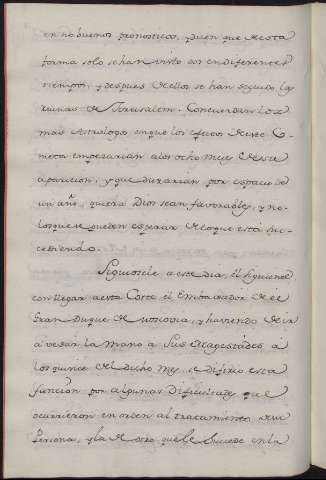 en no buenos pronosticos, pues que de esta
forma solo se han visto dos en diferentes
tiempos, y despues de ellos se han seguido las
ruinas de Jerusalem. Concuerdan los
mas Astrologos en que los efectos de este Co-
meta empezarian a los ocho meses de su
aparicion, y que durarian por espacio de
un año, quiera Dios sean favorables, y no
los que se pueden esperar de lo que está su-
cediendo.
Siguiosele a este dia, el siguiente
con llegar a esta Corte el Embaxador de el
Gran Duque de Moscovia, y haviendo de ir
á vesar la mano a Sus Magestades a
los quince del dicho mes, se difirio esta
funcion por algunas dificultades que
ocurrieron en orden al tratamiento de su
Persona, y la de otro que le sucede en la